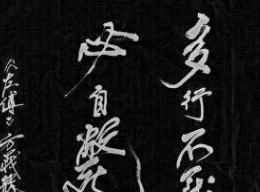 多行不義
必自斃
《左傳》方